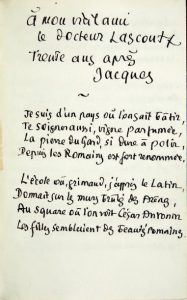 à mon vieil ami
le docteur Lascoutx
Trente ans après
Jacques
~
Je suis d'un pays où l'on sait bâtir,
Te soigner aussi, vigne parfumée,
La pierre du Gard, si dure à polir,
Depuis les Romains est fort renommée.
L'école où, grimaud, j'appris le Latin
Dormait sur les murs des
Au square où l'on voit César Antonin
Les filles semblaient des beautés romaines.